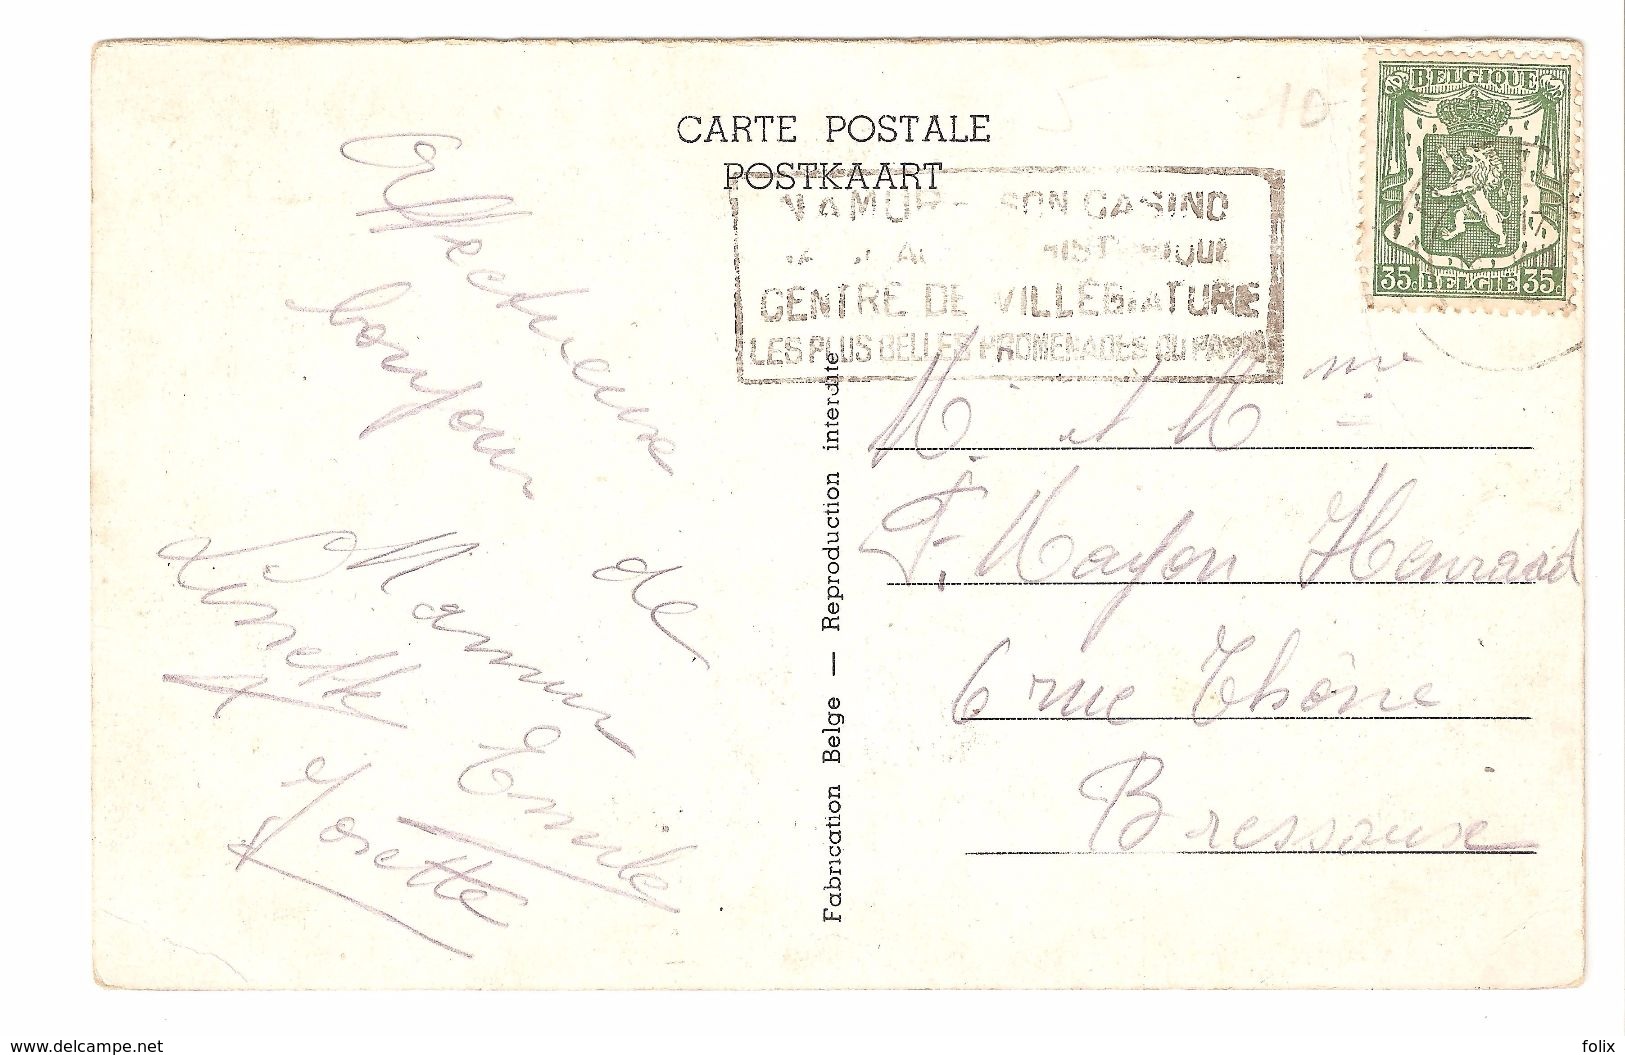 BELGIQUE
35c BELGIE 35c
10
CARTE POSTALE
POSTKAART
NAMUR - SON CASINO
HISTORIQUE
CENTRE DE VILLÉGIATURE
LES PLUS BELLES PROMENADES DU PAYS
Affectueux
bonjour
de
Mamm
Linette
Emile
Josette
Fabrication Belge — Reproduction interdite
M. et Mme
F. Mayon Henrard
6 rue Thône
Bressoux
delcampe.net
folix